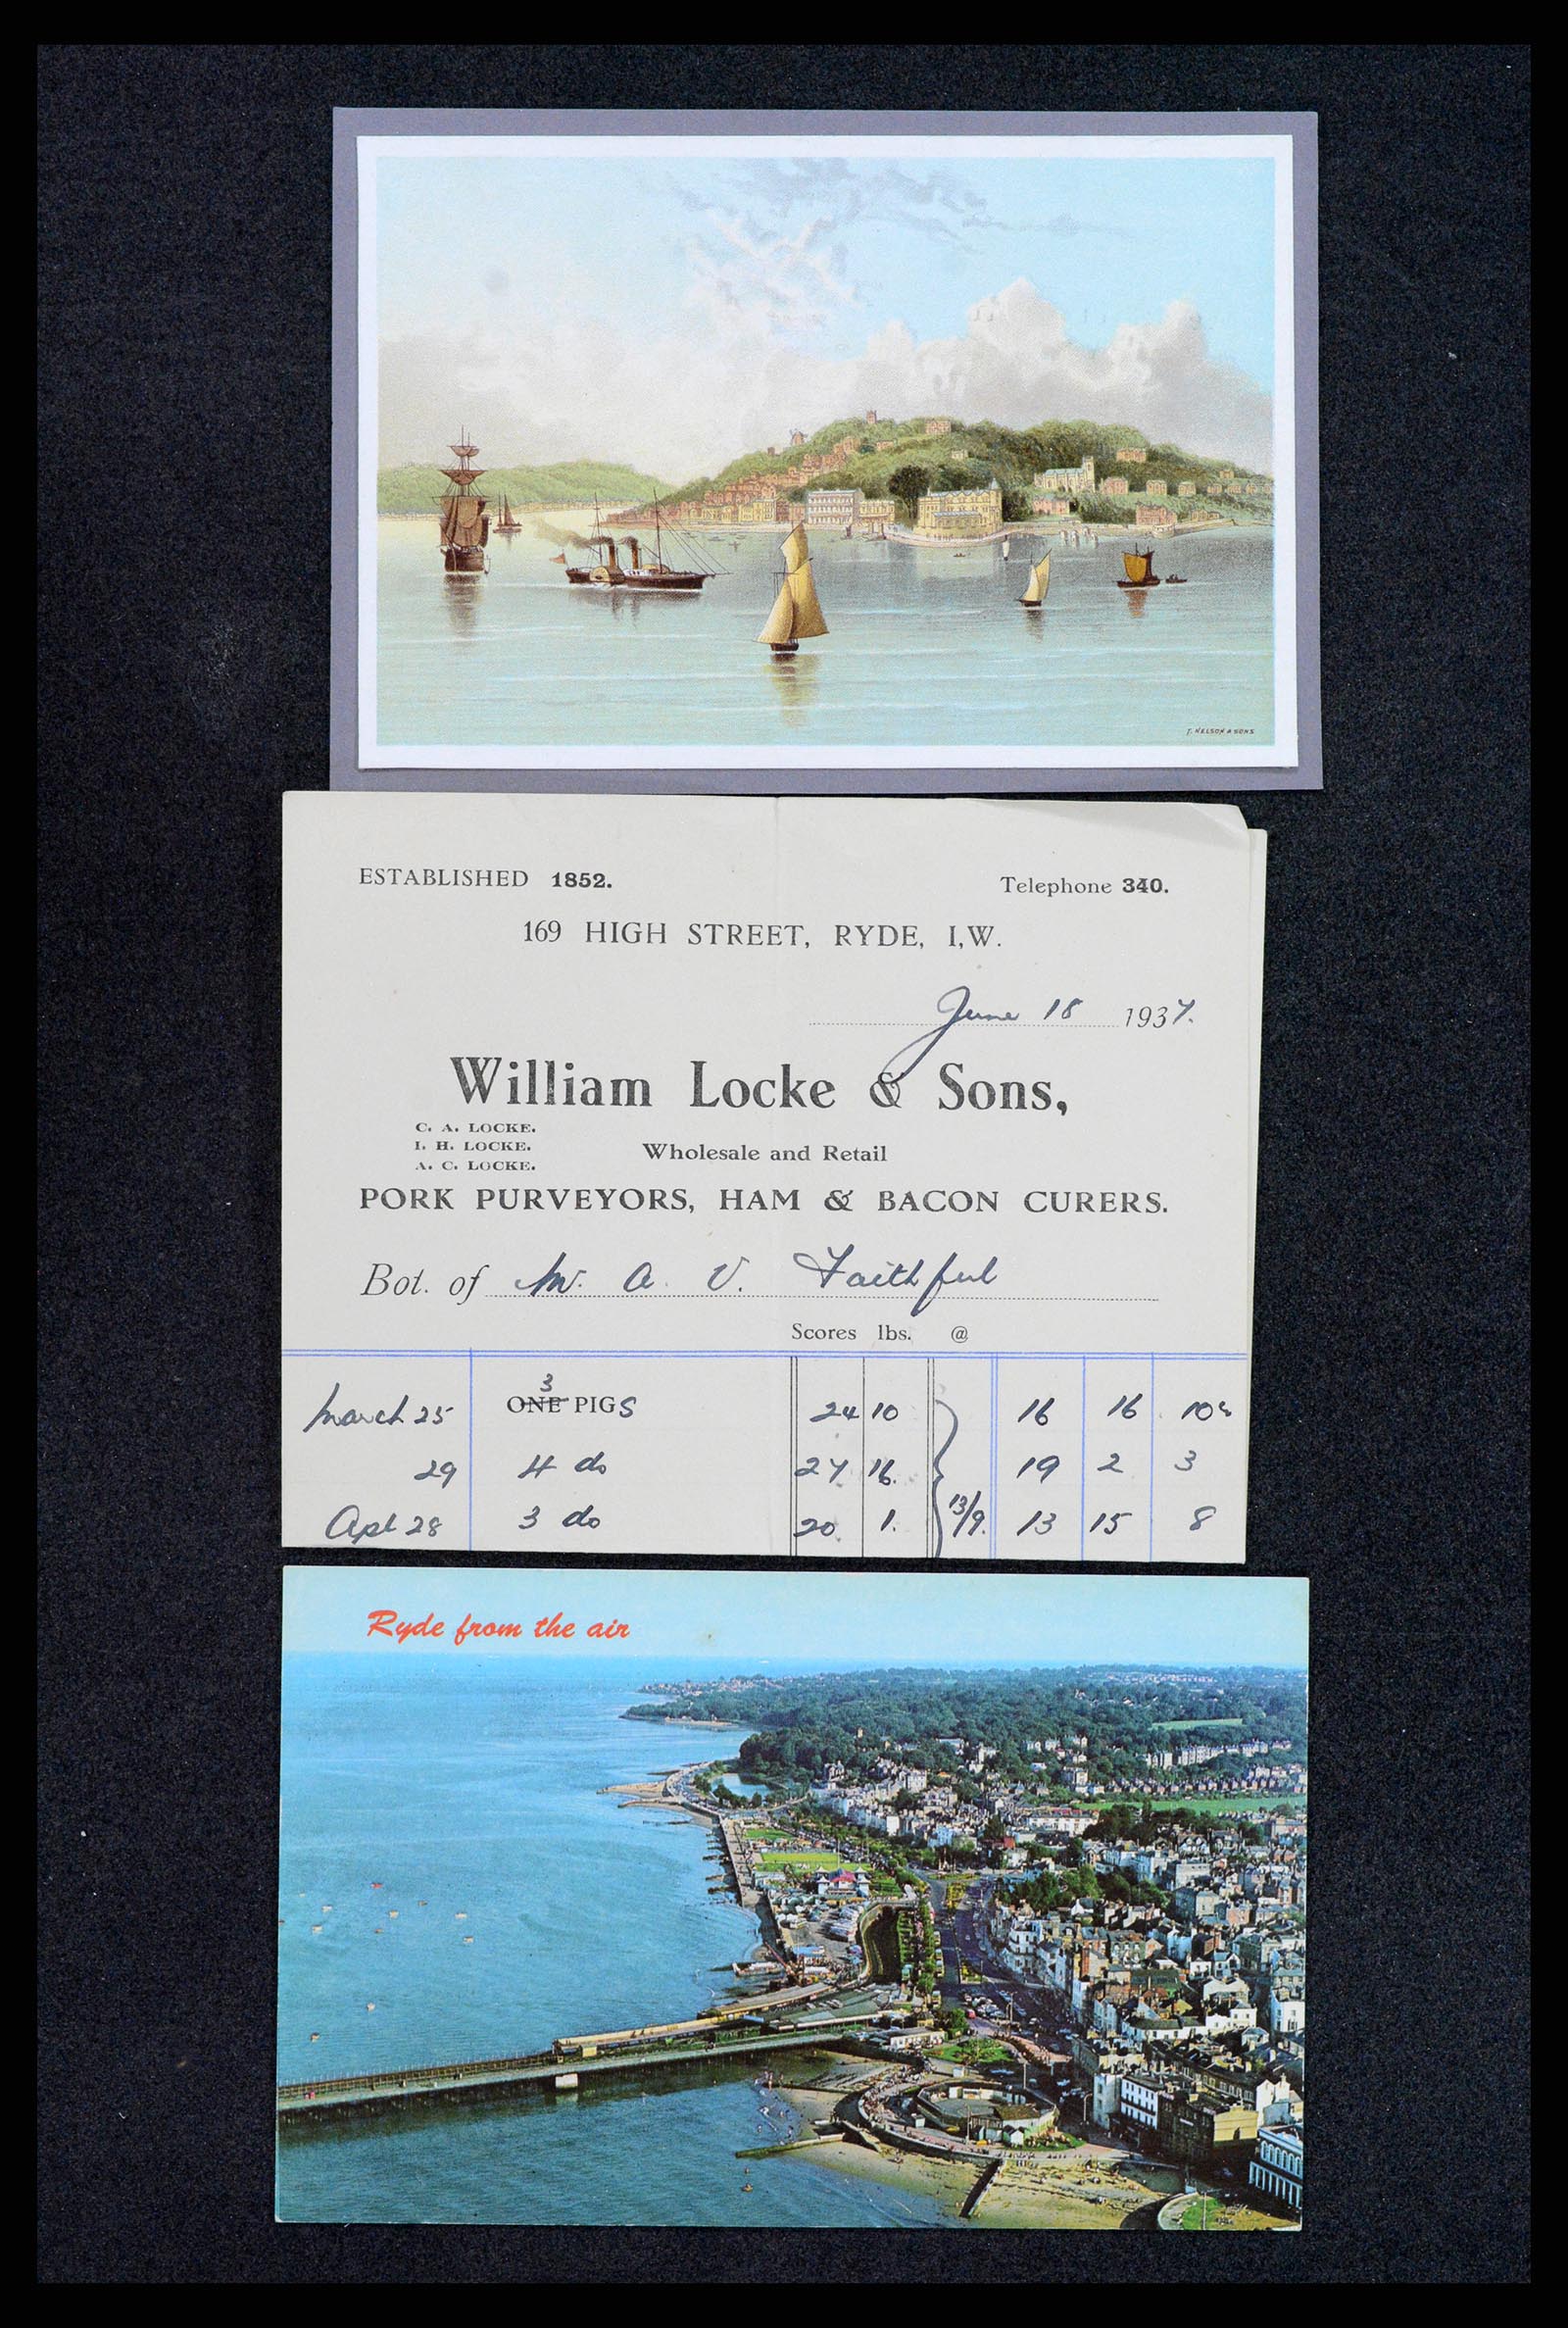 T. NELSON & SONS
ESTABLISHED 1852.
Telephone 340.
169 HIGH STREET, RYDE, I,W.
June 18 1937.
William Locke & Sons,
C. A. LOCKE.
I. H. LOCKE.
A. C. LOCKE.
Wholesale and Retail
PORK PURVEYORS, HAM & BACON CURERS.
Bot. of Mr. A. V. Faithful
Scores lbs. @
3
March 25 ONE PIGS 24 10 16 16 10
29 4 do 27 16. 19 2 3
Apl 28 3 do 20. 1. 13/9. 13 15 8
Ryde from the air